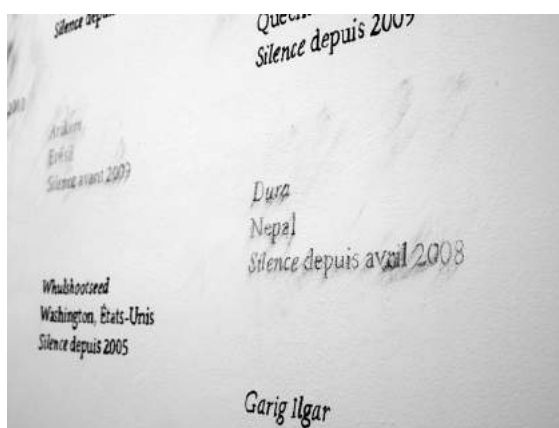 Silence
Silence depuis 2009
Arikem
Brésil
Silence avant 2009
Dura
Nepal
Silence depuis avril 2008
Whulshootseed
Washington, États-Unis
Silence depuis 2005
Garig Ilgar